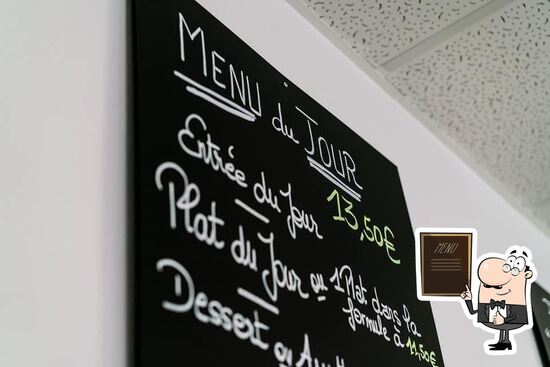 MENU du JOUR
Entrée du Jour 13,50€
Plat du Jour ou 1 Plat dans la
formule à 11,50€
Dessert ou
MENU